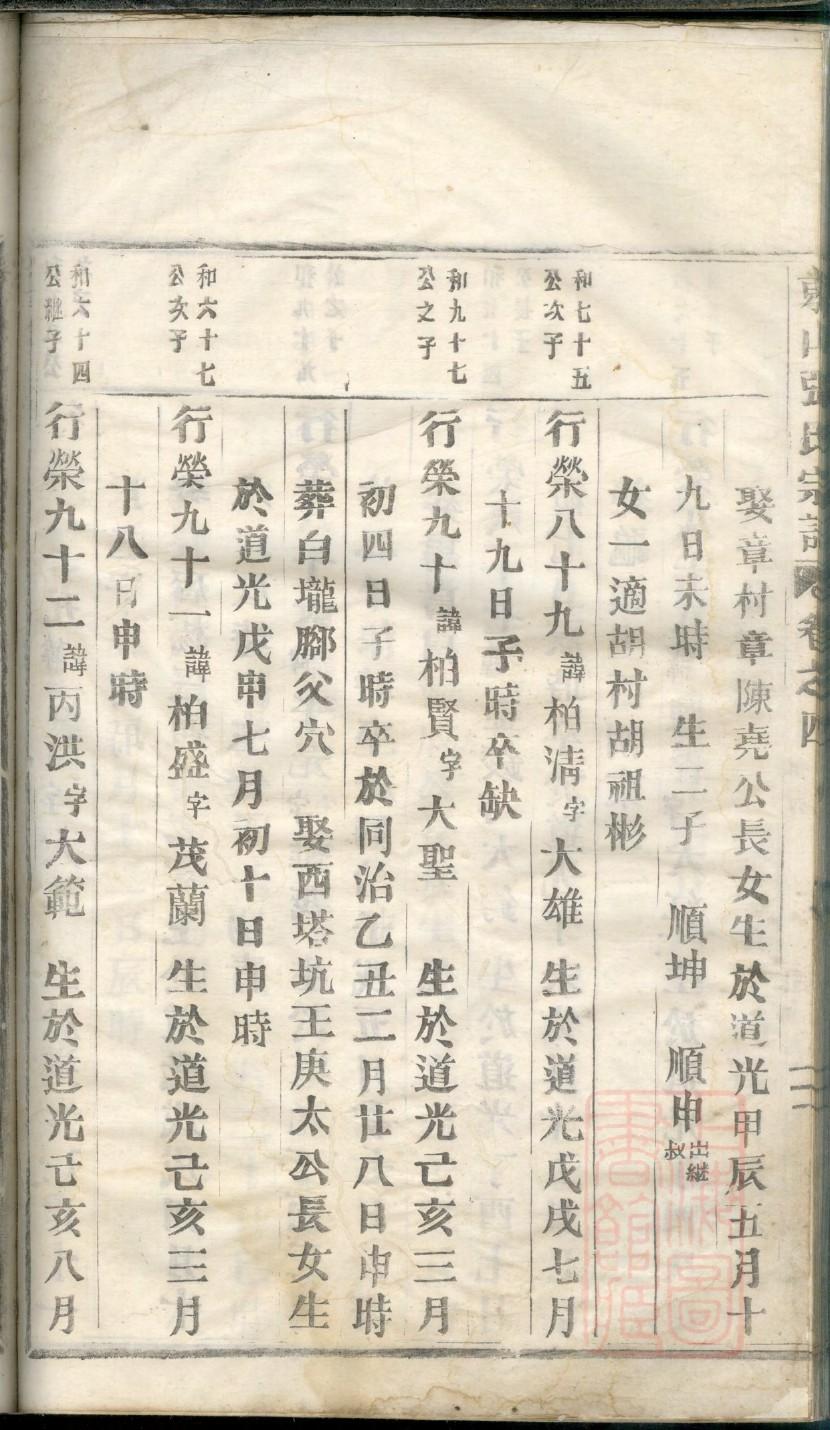 張氏宗譜 卷之四
娶章村章陳堯公長女生於道光甲辰五月十
九日未時 生二子 順坤 順申出繼叔
女一適胡村胡祖彬
和七十五公次子
行榮八十九諱柏清字大雄 生於道光戊戌七月
十九日子時卒缺
和九十七公之子
行榮九十諱柏賢字大聖 生於道光己亥三月
初四日子時卒於同治乙丑二月廿八日申時
葬白壠腳父穴 娶西塔坑王庚太公長女生
於道光戊申七月初十日申時
和六十七公次子
行榮九十一諱柏盛字茂蘭 生於道光己亥三月
十八日申時
和六十四公繼子
行榮九十二諱丙洪字大範 生於道光己亥八月